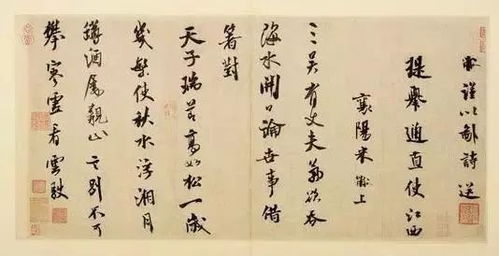 黻謹以鄙詩送
提舉通直使江西
襄陽米黻上
三吳有丈夫氣欲吞
海水開口論世事借
箸對
天子瑞節高如松一歲
使秋水浮湘月
酒屬觀山之別不可
攀寒雲看雲駛